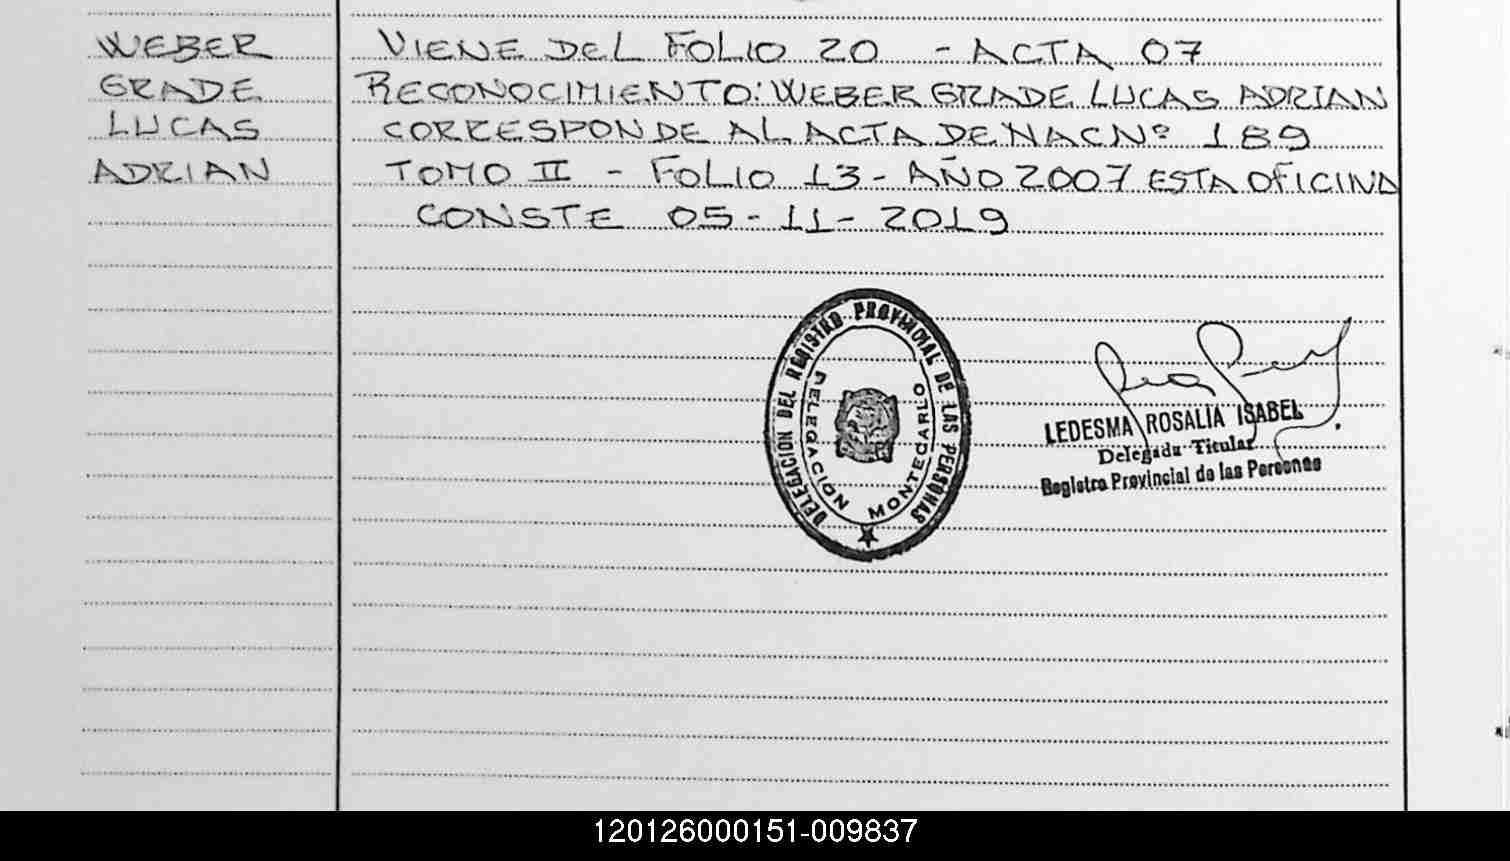 WEBER
GRADE
LUCAS
ADRIAN
VIENE DEL FOLIO 20 - ACTA 07
RECONOCIMIENTO: WEBER GRADE LUCAS ADRIAN
CORRESPONDE AL ACTA DE NAC Nº 189
TOMO II - FOLIO 13 - AÑO 2007 ESTA OFICINA
CONSTE 05-11-2019
DELEGACION DEL REGISTRO PROVINCIAL DE LAS PERSONAS
DELEGACION MONTECARLO
LEDESMA ROSALIA ISABEL
Delegada Titular
Registro Provincial de las Personas
120126000151-009837